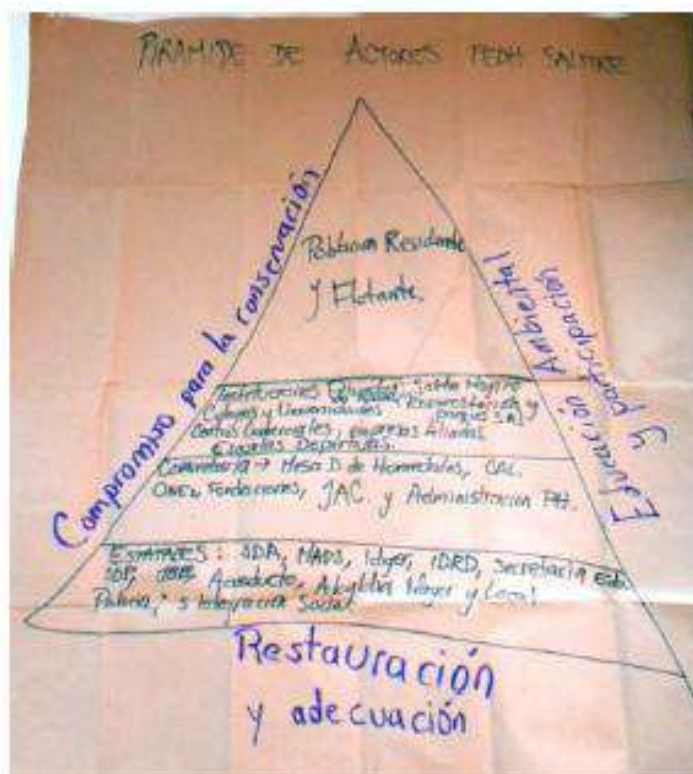 PIRAMIDE DE ACTORES PEDH SALITRE
Compromiso para la conservación
Educación Ambiental
y participación
Población Residente
y Flotante.
Instituciones
Colegios y Universidades
Centros Comerciales, empresas Aliadas
Escuelas Deportivas.
Comunitaria → Mesa D de Humedales, CAL.
Fundaciones, JAC y Administración PH.
ESTATALES: SDA, MADS, Idiger, IDRD, Secretaria
SDP, Acueducto, Alcaldía Mayor y Local
Policia, s Integración Social
Restauración
y adecuación